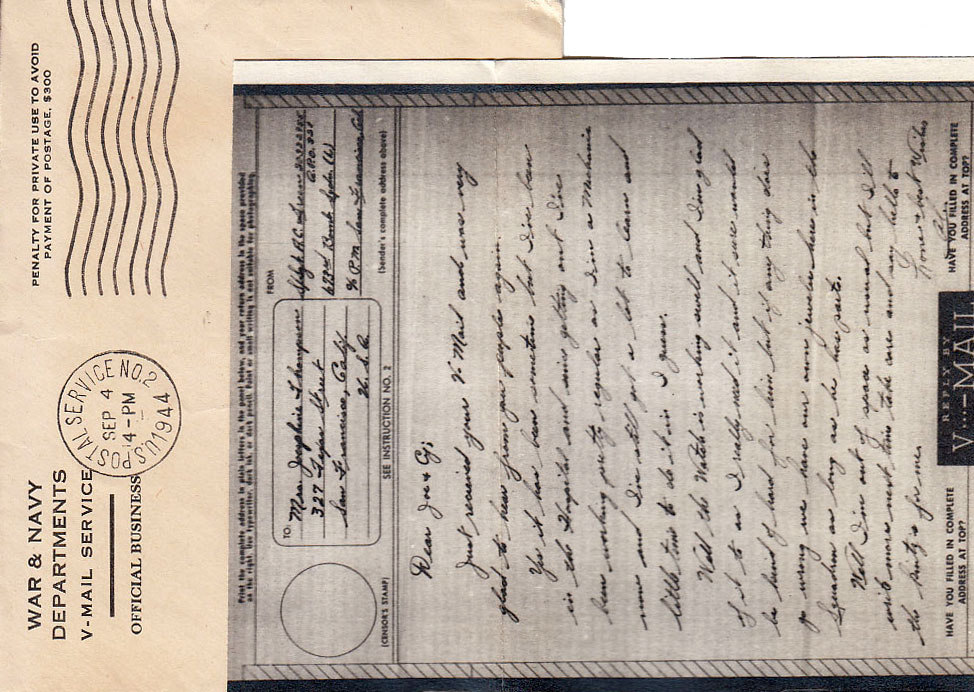 WAR & NAVY
DEPARTMENTS
V-MAIL SERVICE
OFFICIAL BUSINESS
U.S. POSTAL SERVICE NO. 2
SEP 4
4-PM
1944
PENALTY FOR PRIVATE USE TO AVOID
PAYMENT OF POSTAGE, $300
Print the complete address in plain letters in the panel below, and your return address in the space provided
on the right. Use typewriter, dark ink, or dark pencil. Faint or small writing is not suitable for photographing.
TO:
Mrs. Josephine Thompson
327 Street
San Francisco, Calif
U.S.A.
FROM
A.P.O. 
Bomb Sqdn (H)
% P.M. San Francisco, Cal
(CENSOR'S STAMP)
SEE INSTRUCTION NO. 2
(Sender's complete address above)
Dear Joe & Cj;
Just received your V Mail and was very
glad to hear from you people again.
Yes it has been sometime but I've been
in the Hospital and since getting out I've
been working pretty regular as I'm a Mechanic
now and I've still got a lot to learn and
little time to do it in I guess.
Well the Watch is working swell and I'm glad
of it to as I really need it and it sure would
be kind of hard for him but if any thing does
go wrong we have our own jeweler here in the
Squadron as long as he has parts.
Well I'm out of space as usual but I'll
write more next time take care and say hello to
the for me.
Love & best Wishes
HAVE YOU FILLED IN COMPLETE
ADDRESS AT TOP?
REPLY BY
V···–MAIL
HAVE YOU FILLED IN COMPLETE
ADDRESS AT TOP?